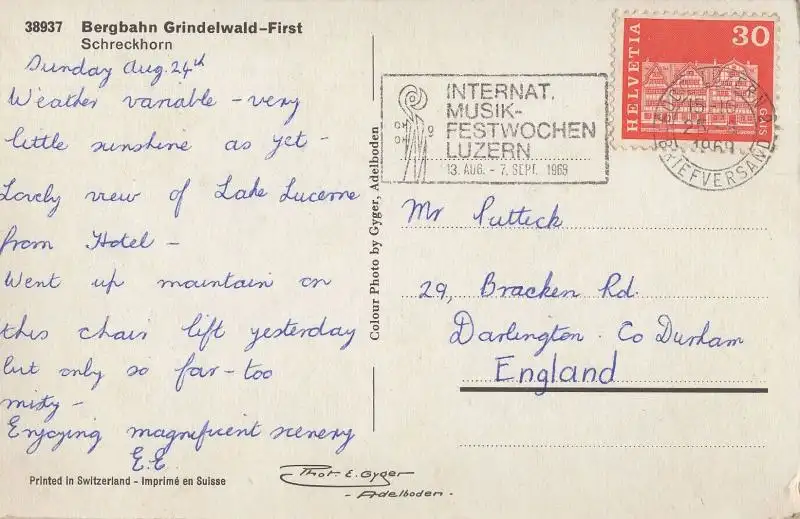 38937 Bergbahn Grindelwald–First
Schreckhorn
Sunday Aug. 24th
Weather variable – very
little sunshine as yet –
Lovely view of Lake Lucerne
from Hotel –
Went up mountain on
this chair lift yesterday
but only so far – too
misty –
Enjoying magnificent scenery
E.E.
Printed in Switzerland - Imprimé en Suisse
Colour Photo by Gyger, Adelboden
Phot. E. Gyger
- Adelboden -
INTERNAT.
MUSIK-
FESTWOCHEN
LUZERN
13. AUG. - 7. SEPT. 1969
HELVETIA
30
GAIS
1969
BRIEFVERSAND
Mr Putteck
29, Bracken Rd.
Darlington. Co Durham
England